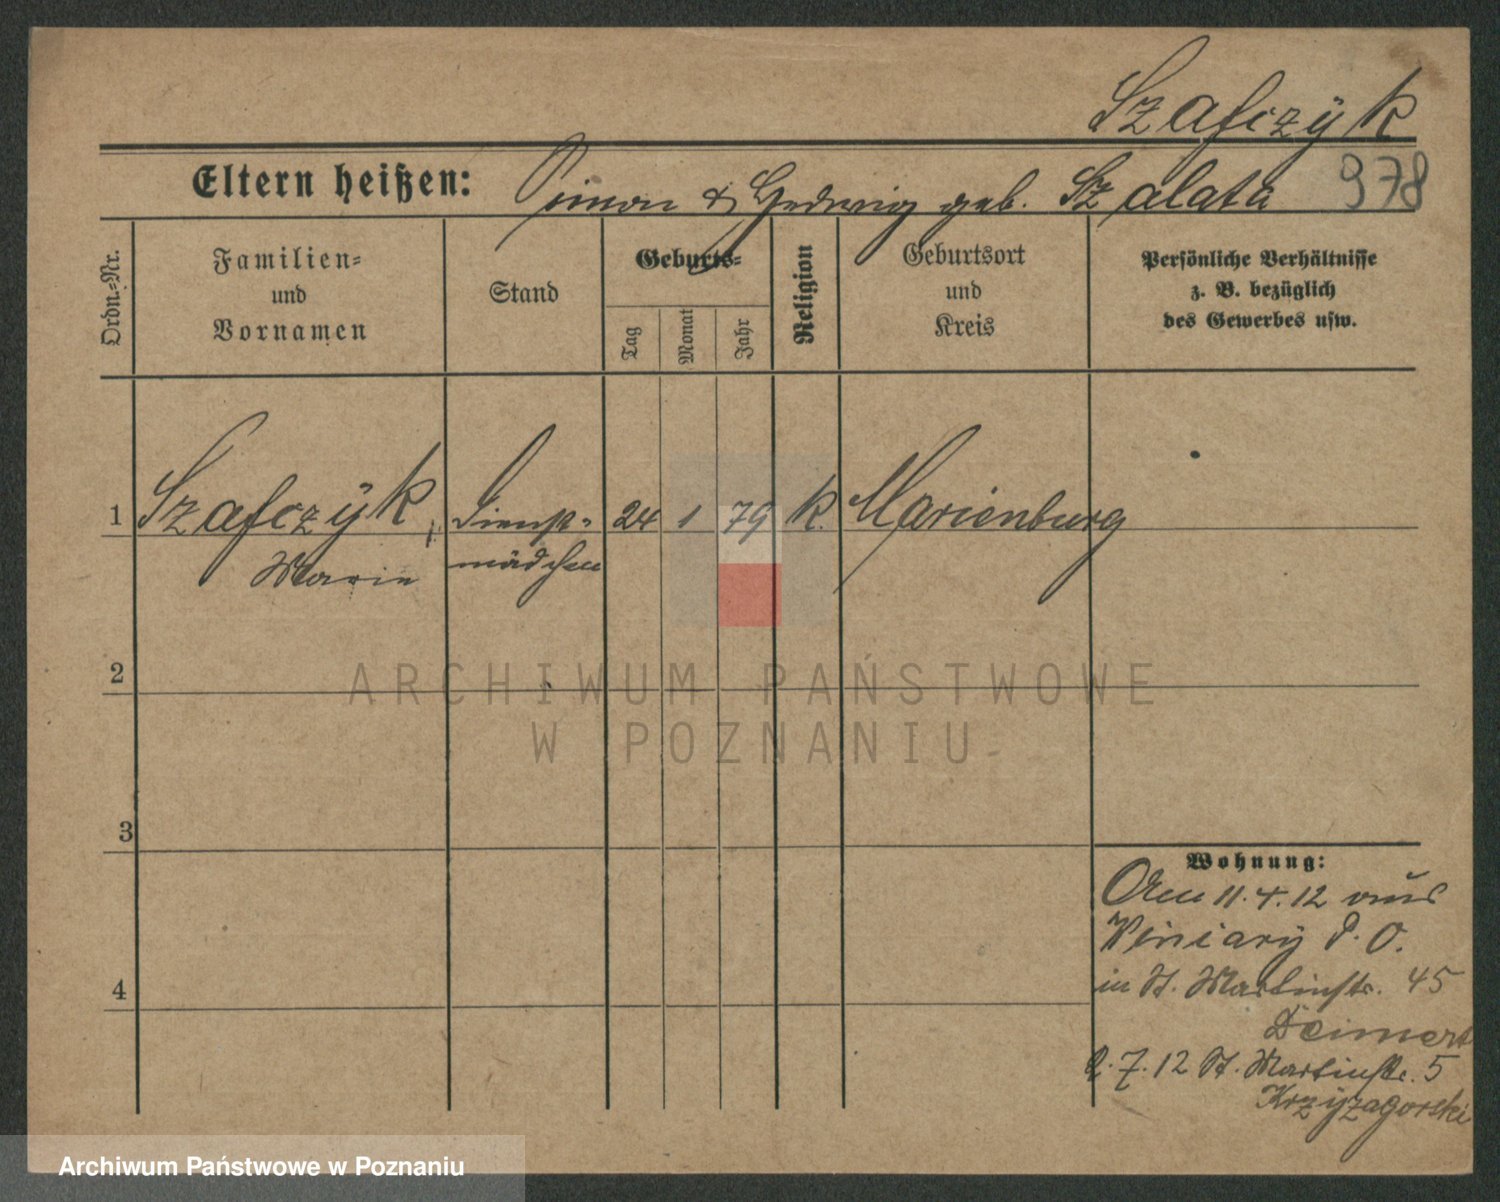 Szafczÿk
Eltern heißen: Simon & Hedwig geb. Szalata 978
Ordn.-Nr.
Familien-
und
Vornamen
Stand
Geburts-
Tag
Monat
Jahr
Religion
Geburtsort
und
Kreis
Persönliche Verhältnisse
z. B. bezüglich
des Gewerbes usw.
1 Szafczÿk, Dienst- 24 1 79 k. Marienburg
Marie mädchen
2
3
4
Wohnung:
Am 11.4.12 aus
Winiarÿ P. O.
in St. Martinstr. 45
Deimert
2.7.12 St. Martinstr. 5
Krzÿzagorski
ARCHIWUM PAŃSTWOWE
W POZNANIU
Archiwum Państwowe w Poznaniu